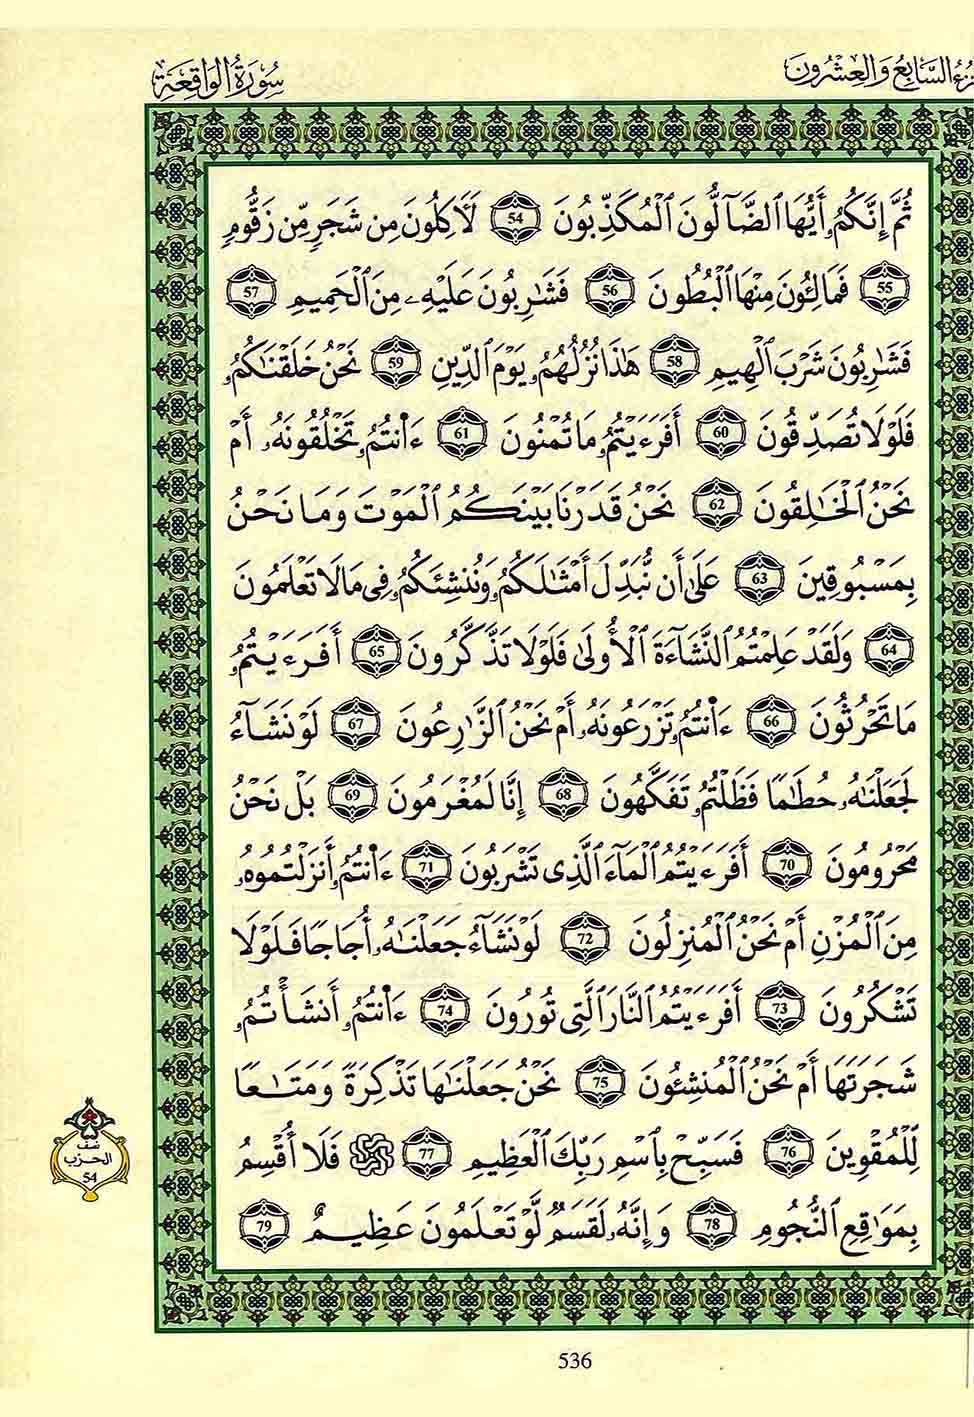 سُورَةُ الوَاقِعَة
زءُ السَّابِعُ وَالعِشْرُونَ
ثُمَّ إِنَّكُمُۥ أَيُّهَا ٱلضَّآلُّونَ ٱلْمُكَذِّبُونَ 54 لَأٓكِلُونَ مِن شَجَرٍ مِّن زَقُّومٍ
55 فَمَالِـُٔونَ مِنْهَا ٱلْبُطُونَ 56 فَشَٰرِبُونَ عَلَيْهِۦ مِنَ ٱلْحَمِيمِ 57
فَشَٰرِبُونَ شَرْبَ ٱلْهِيمِ 58 هَٰذَا نُزُلُهُمُۥ يَوْمَ ٱلدِّينِ 59 نَحْنُ خَلَقْنَٰكُمُۥ
فَلَوْلَا تُصَدِّقُونَ 60 أَفَرَءَيْتُمُۥ مَا تُمْنُونَ 61 ءَاْنتُمُۥ تَخْلُقُونَهُۥ أَمْ
نَحْنُ ٱلْخَٰلِقُونَ 62 نَحْنُ قَدَرْنَا بَيْنَكُمُ ٱلْمَوْتَ وَمَا نَحْنُ
بِمَسْبُوقِينَ 63 عَلَىٰ أَن نُّبَدِّلَ أَمْثَٰلَكُمُۥ وَنُنشِئَكُمُۥ فِى مَا لَا تَعْلَمُونَ
64 وَلَقَدْ عَلِمْتُمُ ٱلنَّشَآءَةَ ٱلْأُولَىٰ فَلَوْلَا تَذَّكَّرُونَ 65 أَفَرَءَيْتُمُۥ
مَا تَحْرُثُونَ 66 ءَاْنتُمُۥ تَزْرَعُونَهُۥ أَمْ نَحْنُ ٱلزَّٰرِعُونَ 67 لَوْ نَشَآءُ
لَجَعَلْنَٰهُۥ حُطَٰمًا فَظَلْتُمُۥ تَفَكَّهُونَ 68 إِنَّا لَمُغْرَمُونَ 69 بَلْ نَحْنُ
مَحْرُومُونَ 70 أَفَرَءَيْتُمُ ٱلْمَآءَ ٱلَّذِى تَشْرَبُونَ 71 ءَاْنتُمُۥ أَنزَلْتُمُوهُۥ
مِنَ ٱلْمُزْنِ أَمْ نَحْنُ ٱلْمُنزِلُونَ 72 لَوْ نَشَآءُ جَعَلْنَٰهُۥ أُجَاجًا فَلَوْلَا
تَشْكُرُونَ 73 أَفَرَءَيْتُمُ ٱلنَّارَ ٱلَّتِى تُورُونَ 74 ءَاْنتُمُۥ أَنشَأْتُمُۥ
شَجَرَتَهَا أَمْ نَحْنُ ٱلْمُنشِـُٔونَ 75 نَحْنُ جَعَلْنَٰهَا تَذْكِرَةً وَمَتَٰعًا
لِّلْمُقْوِينَ 76 فَسَبِّحْ بِٱسْمِ رَبِّكَ ٱلْعَظِيمِ 77 فَلَا أُقْسِمُ
بِمَوَٰقِعِ ٱلنُّجُومِ 78 وَإِنَّهُۥ لَقَسَمٌ لَّوْ تَعْلَمُونَ عَظِيمٌ 79
نصف
الحزب
54
536